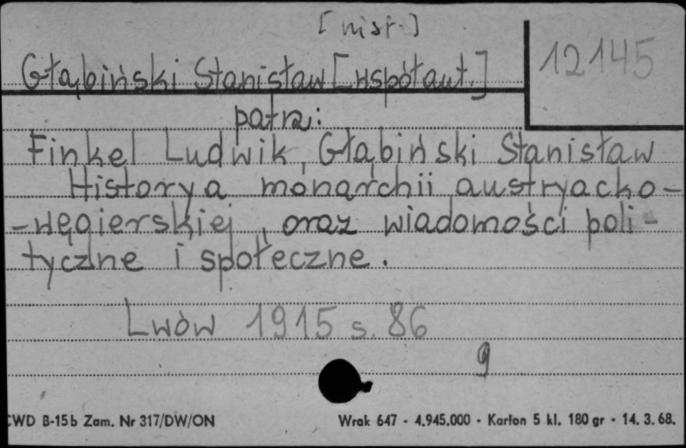 [hist.]
12145
Głąbiński Stanisław [współaut.]
patrz:
Finkel Ludwik, Głąbiński Stanisław
Historya monarchii austryacko-
-węgierskiej, oraz wiadomości poli-
tyczne i społeczne.
Lwów 1915 s. 86
9
CWD B-15b Zam. Nr 317/DW/ON
Wrak 647 - 4.945.000 - Karton 5 kl. 180 gr - 14. 3. 68.